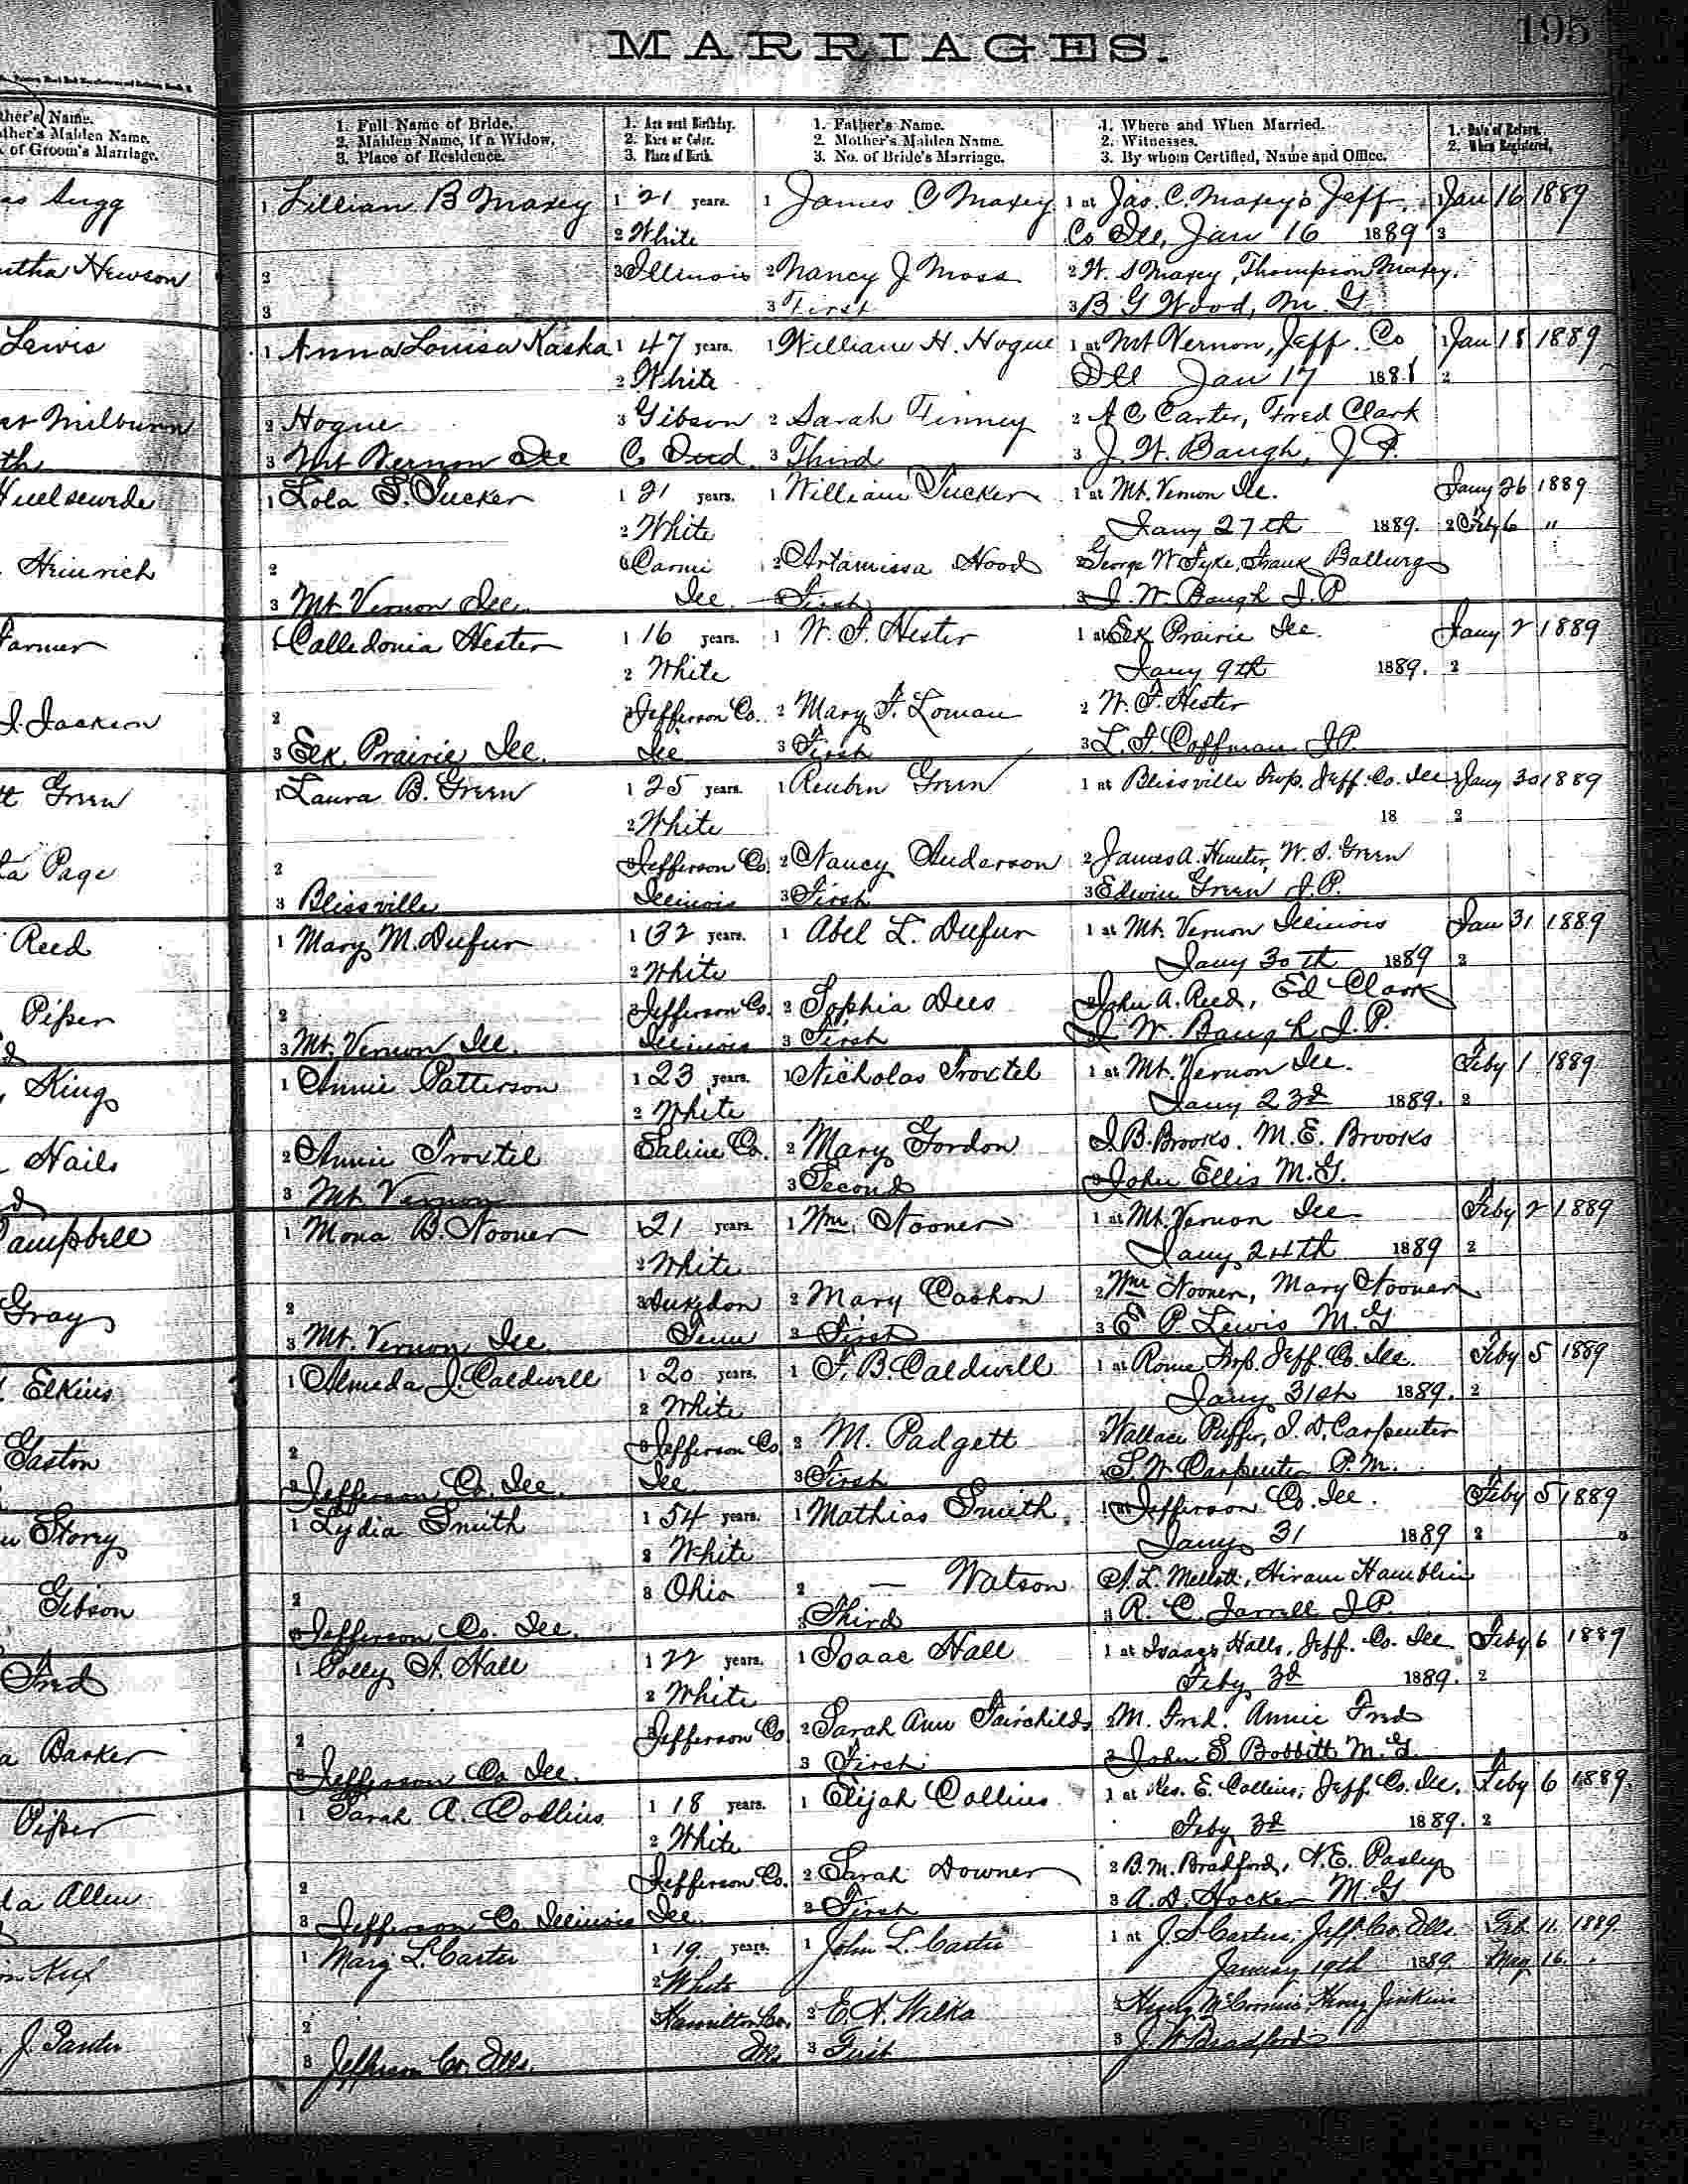 MARRIAGES.
195
ther's Name.
ther's Maiden Name.
of Groom's Marriage.
1. Full Name of Bride.
2. Maiden Name, if a Widow.
3. Place of Residence.
1. Age next Birthday.
2. Race or Color.
3. Place of Birth.
1. Father's Name.
2. Mother's Maiden Name.
3. No. of Bride's Marriage.
1. Where and When Married.
2. Witnesses.
3. By whom Certified, Name and Office.
1. Date of Return.
2. When Registered.
Sugg 1 Lillian B Maxey 1 21 years. 1 James C Maxey 1 at Jas. C. Maxey's Jeff. 1 Jan 16 1889
2 White Co Ill, Jan 16 1889 2
Hewson 2 3 Illinois 2 Nancy J Moss 2 W. S Maxey, Thompson Maxey.
3 3 First 3 B G Wood, M. G
Lewis 1 Anna Louisa Kaska 1 47 years. 1 William H. Hogue 1 at Mt Vernon, Jeff. Co 1 Jan 18 1889
2 White Ill Jan 17 188 2
Milburn 2 Hogue 3 Gibson 2 Sarah Finney 2 A C Carter, Fred Clark
th 3 Mt Vernon Ill Co Ind. 3 Third 3 J. W. Baugh, J. P.
1 Lola S. Tucker 1 21 years. 1 William Tucker 1 at Mt. Vernon Ill. Jany 26 1889
2 White Jany 27th 1889. 2 6 "
Heinrich 2 Carmi 2 Artamissa Hood 2 George W. Frank
3 Mt. Vernon Ill. Ill. 3 First 3 J. W. Baugh J. P.
Farmer 1 Calledonia Hester 1 16 years. 1 W. F. Hester 1 at Elk Prairie Ill. Jany 2 1889
2 White Jany 9th 1889. 2
J. Jackson 2 3 Jefferson Co. 2 Mary F. Loman 2 W. F. Hester
3 Elk Prairie Ill. Ill 3 First 3 L. F. Coffman J. P.
Green 1 Laura B. Green 1 25 years. 1 Reuben Green 1 at Blissville Twp. Jeff. Co. Ill. Jany 30 1889
2 White 18 2
Page 2 3 Jefferson Co. 2 Nancy Anderson 2 James A. Hunter, W. S. Green
3 Blissville Illinois 3 First 3 Edwin Green J. P.
Reed 1 Mary M. Dufur 1 32 years. 1 Abel L. Dufur 1 at Mt. Vernon Illinois Jan 31 1889
2 White Jany 30th 1889 2
Piper 2 3 Jefferson Co. 2 Sophia Dees 2 John A. Reed, Ed Clark
3 Mt. Vernon Ill. Illinois 3 First J. W. Baugh J. P.
King 1 Annie Patterson 1 23 years. 1 Nicholas Troxtel 1 at Mt. Vernon Ill. Feby 1 1889
2 White Jany 23d 1889. 2
Nails 2 Annie Troxtel Saline Co. 2 Mary Gordon J. B. Brooks. M. E. Brooks
3 Mt. Vernon 3 Second 3 John Ellis M. G.
Campbell 1 Mona B. Nooner 1 21 years. 1 Wm. Nooner 1 at Mt. Vernon Ill Feby 2 1889
2 White Jany 24th 1889 2
Gray 2 2 Mary Cashon 2 Wm Nooner, Mary Nooner
3 Mt. Vernon Ill. Tenn 3 First 3 E. P. Lewis M. G
Elkins 1 Almeda J. Caldwell 1 20 years. 1 F. B. Caldwell 1 at Rome Twp. Jeff. Co. Ill. Feby 5 1889
2 White Jany 31st 1889. 2
Gaston 2 3 Jefferson Co. 2 M. Padgett 2 Wallace Puffer, J. D. Carpenter
3 Jefferson Co. Ill. Ill. 3 First S. W. Carpenter P. M.
Storry 1 Lydia Smith 1 54 years. 1 Mathias Smith 1 at Jefferson Co. Ill. Feby 5 1889
2 White Jany 31 1889 2
Gibson 2 3 Ohio 2 — Watson L. Mellott, Hiram Hamblin
3 Jefferson Co. Ill. 3 Third 3 R. C. Jarrell J. P.
Fred 1 Polly A. Hall 1 22 years. 1 Isaac Hall 1 at Isaac Halls, Jeff. Co. Ill Feby 6 1889
2 White Feby 3d 1889. 2
Barker 2 3 Jefferson Co 2 Sarah Ann Fairchilds 2 M. Fred. Annie Fred
3 Jefferson Co Ill. 3 First 3 John S. Bobbitt M. G.
Piper 1 Sarah A. Collins 1 18 years. 1 Elijah Collins 1 at Res. E. Collins, Jeff. Co. Ill. Feby 6 1889.
2 White Feby 3d 1889. 2
Allen 2 3 Jefferson Co. 2 Sarah Downer 2 B. M. Bradford, N. E. Pasley
3 Jefferson Co. Illinois Ill. 3 First 3 A. D. Hocker M. G
1 Mary L. Carter 1 19 years. 1 John L. Carter 1 at J. S Carters, Jeff. Co. Ills. Feb 11. 1889
2 White January 19th 1889. May 16.
J. 2 Hamilton Co. 2 E. A. Wilka Henry Henry Jinkins
3 Jefferson Co. Ills. Ills 3 First 3 J. W. Bradford